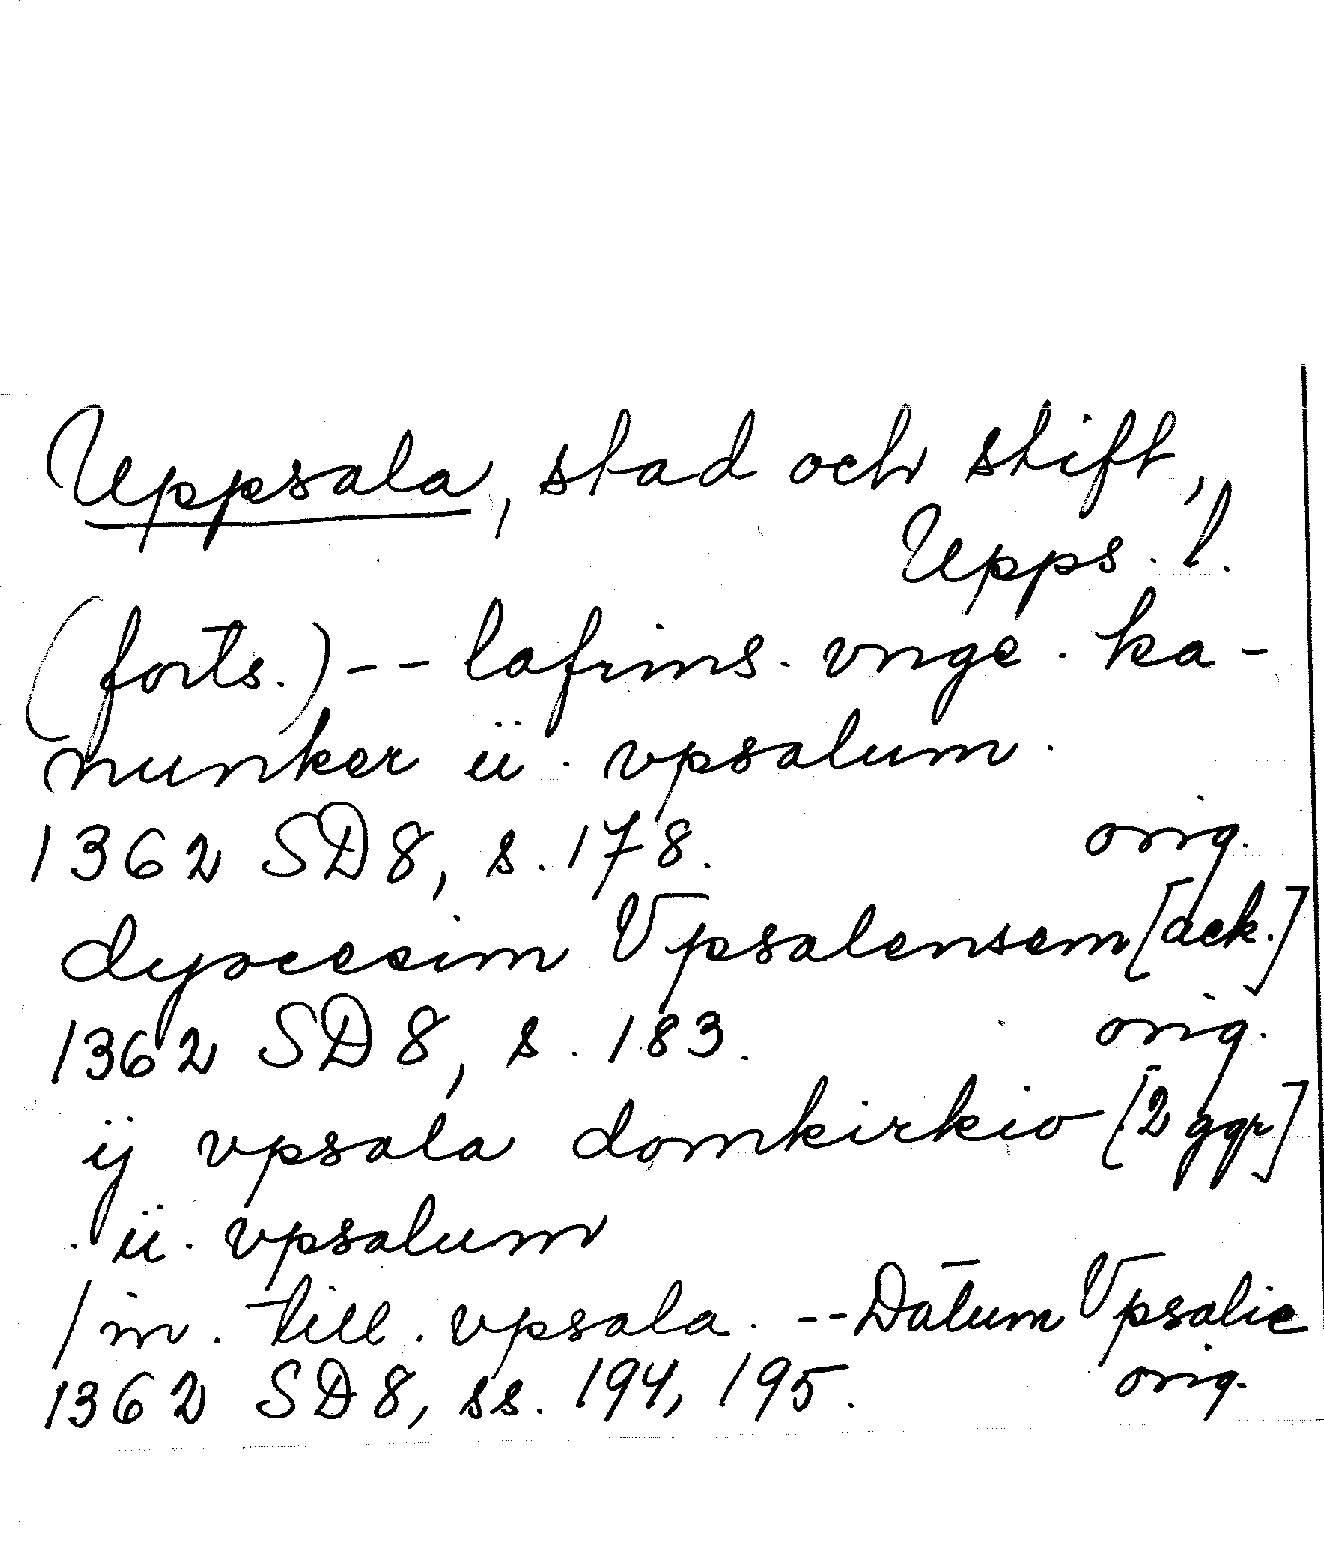 Uppsala, stad och stift,
Upps. l.
(forts.) -- lafrins. vnge. ka-
nunker ü. vpsalum.
1362 SD8, s. 178. orig.
dyocesim Vpsalensem [ack.]
1362 SD8, s. 183. orig.
ij vpsala domkirkio [2 ggr]
. ü. vpsalum
/in. till. vpsala. -- Datum Vpsalie
1362 SD8, ss. 194, 195. orig.